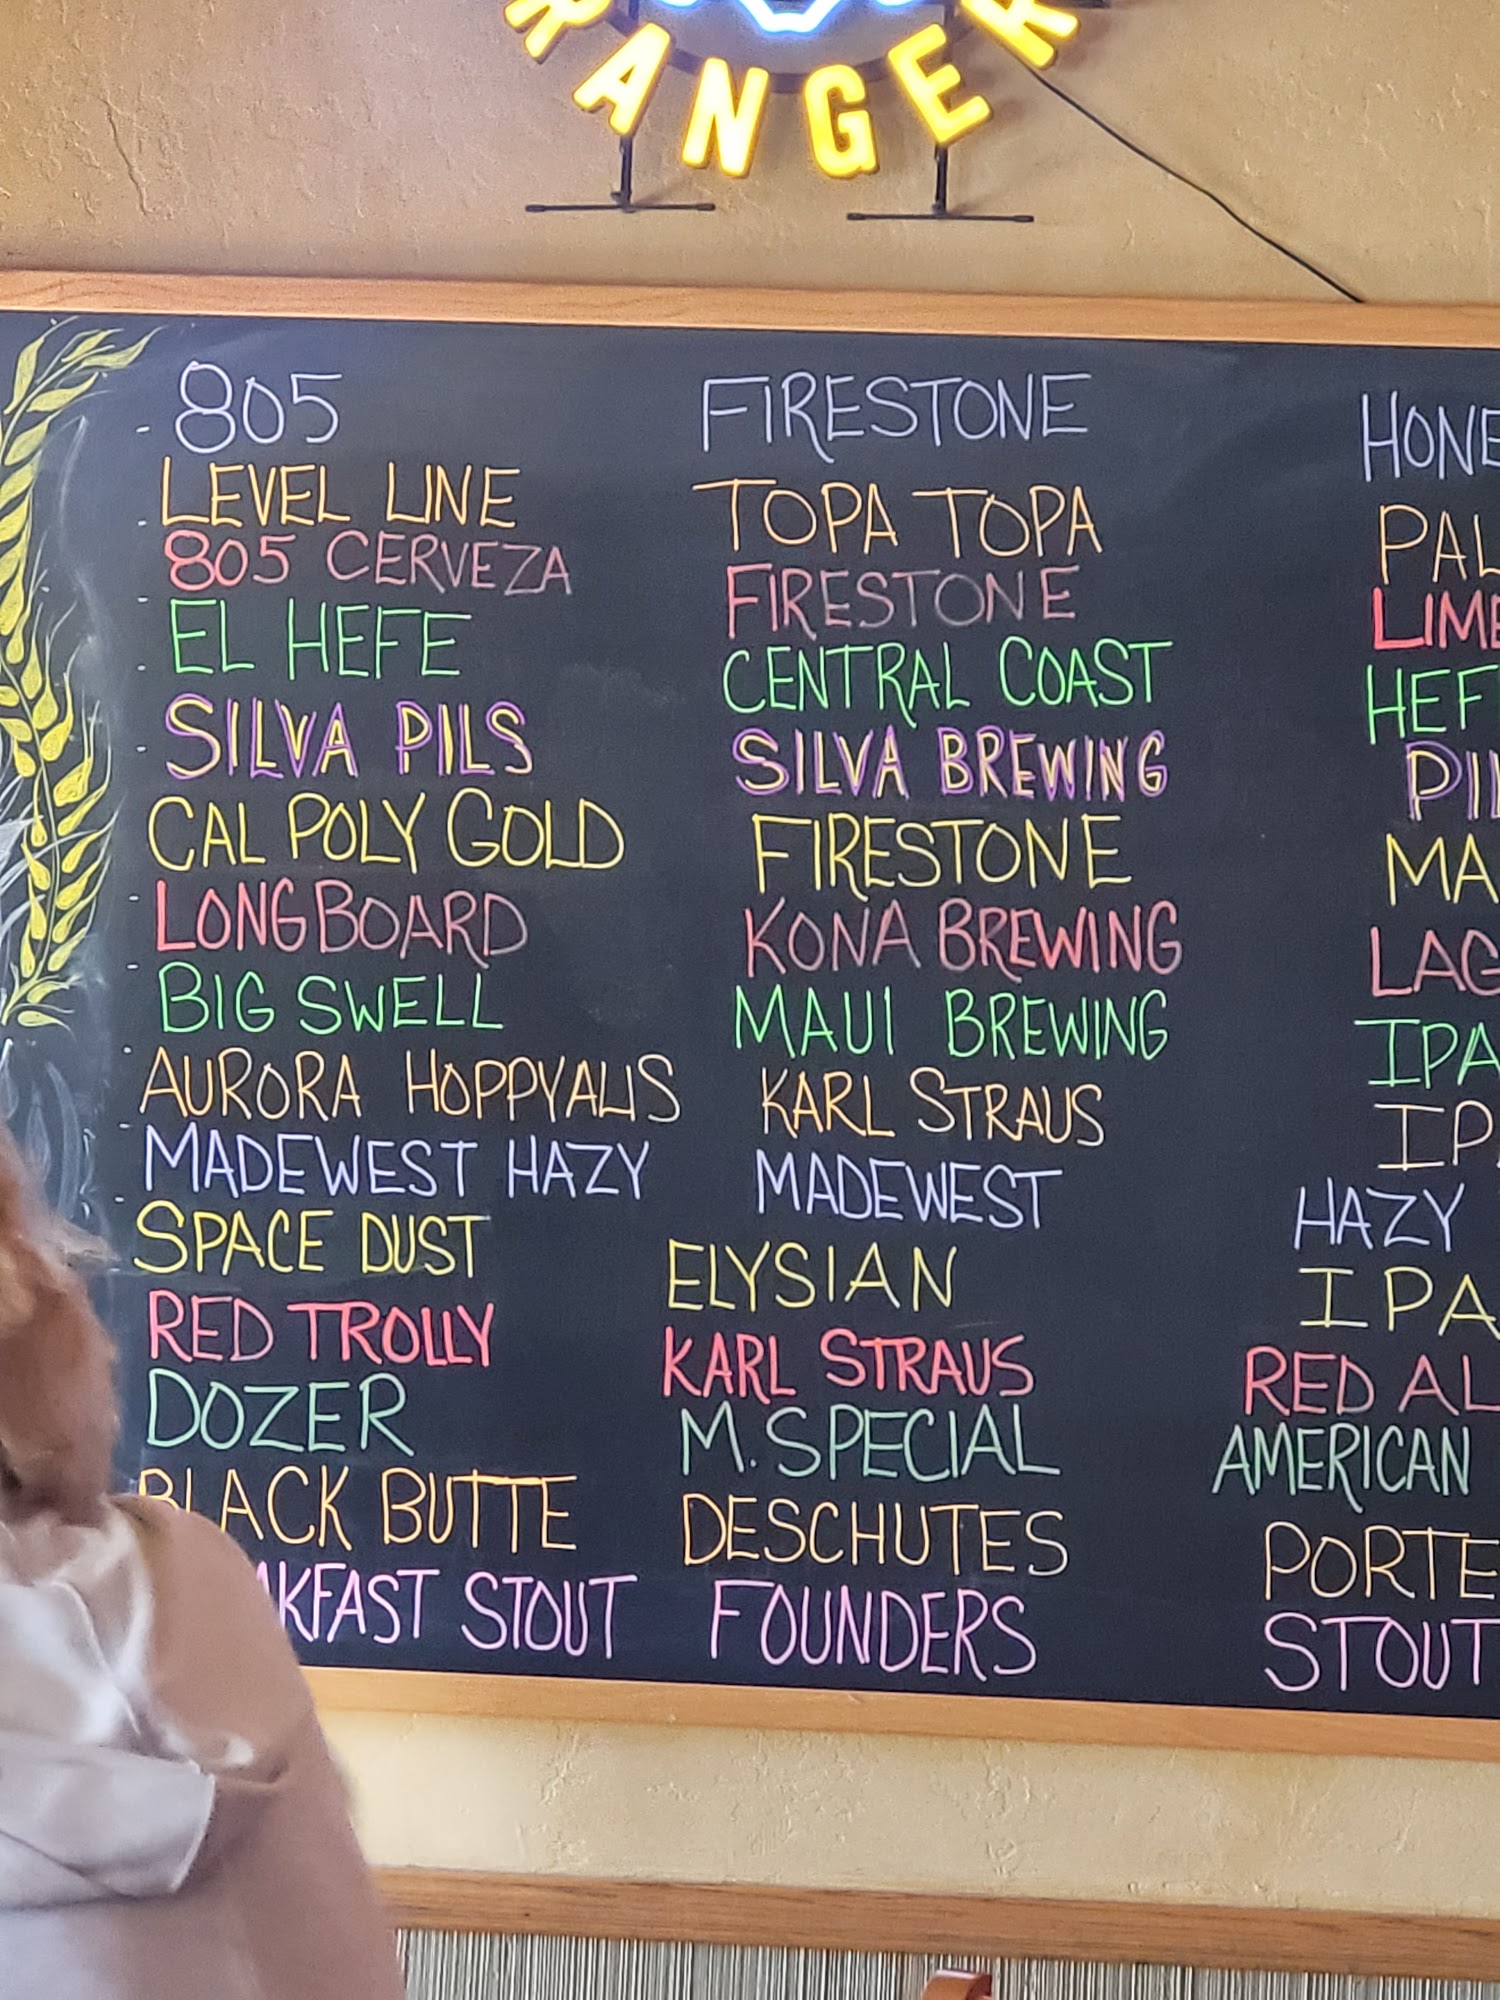 RANGER
805 FIRESTONE HONE
LEVEL LINE TOPA TOPA PAL
805 CERVEZA FIRESTONE LIME
EL HEFE CENTRAL COAST HEF
SILVA PILS SILVA BREWING PIL
CAL POLY GOLD FIRESTONE MA
LONGBOARD KONA BREWING LAG
BIG SWELL MAUI BREWING IPA
AURORA HOPPYALIS KARL STRAUS IP
MADEWEST HAZY MADEWEST HAZY
SPACE DUST ELYSIAN IPA
RED TROLLY KARL STRAUS RED AL
DOZER M. SPECIAL AMERICAN
BLACK BUTTE DESCHUTES PORTE
AKFAST STOUT FOUNDERS STOUT